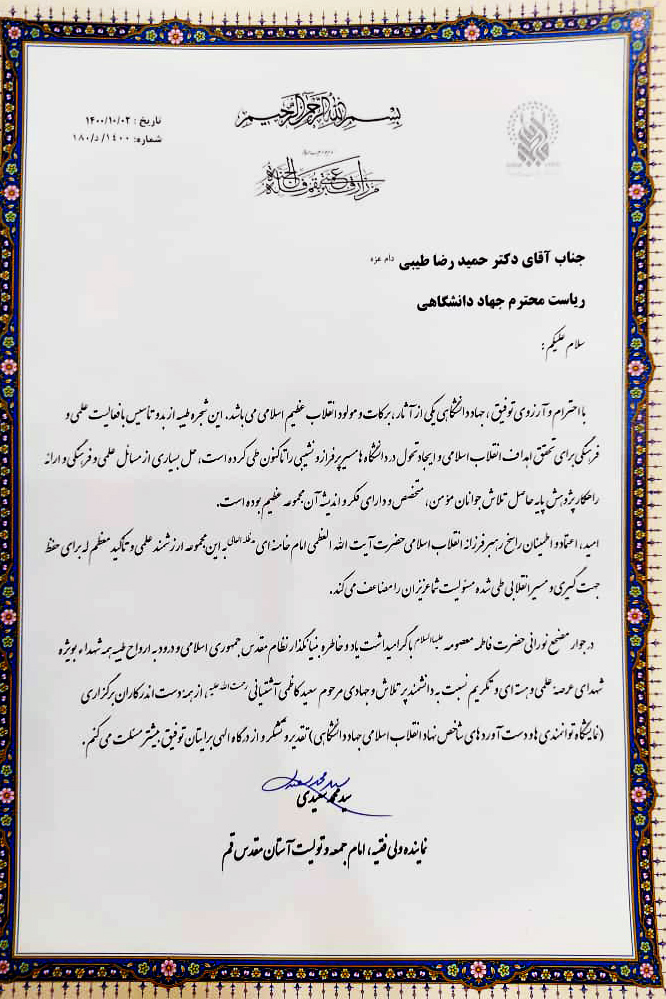 بسم الله الرحمن الرحیم
تاریخ : ۱۴۰۰/۱۰/۰۲
شماره: ۱۴۰۰/د/۱۸۰
من زار عمتی بقم فله الجنة
جناب آقای دکتر حمید رضا طیبی دام عزه
ریاست محترم جهاد دانشگاهی
سلام علیکم :
با احترام و آرزوی توفیق ، جهاد دانشگاهی یکی از آثار ، برکات و مولود انقلاب عظیم اسلامی می باشد. این شجره طیبه از بدو تأسیس با فعالیت علمی و
فرهنگی برای تحقق اهداف انقلاب اسلامی و ایجاد تحول در دانشگاه ها مسیر پر فراز و نشیبی را تاکنون طی کرده است، حل بسیاری از مسائل علمی و فرهنگی و ارائه
راهکار پژوهش پایه حاصل تلاش جوانان مؤمن ، متخصص و دارای فکر و اندیشه آن مجموعه عظیم بوده است.
امید ، اعتماد و اطمینان راسخ رهبر فرزانه انقلاب اسلامی حضرت آیت الله العظمی امام خامنه ای مدظله العالی به این مجموعه ارزشمند علمی و تأکید معظم له برای حفظ
جهت گیری و مسیر انقلابی طی شده مسئولیت شما عزیزان را مضاعف می کند.
در جوار مضجع نورانی حضرت فاطمه معصومه علیهاالسلام با گرامیداشت یاد و خاطره بنیانگذار نظام مقدس جمهوری اسلامی و درود به ارواح طیبه همه شهداء بویژه
شهدای عرصهٔ علمی و هسته ای و تکریم نسبت به دانشمند پر تلاش و جهادی مرحوم سعید کاظمی آشتیانی رحمت الله علیه ، از همه دست اندرکاران برگزاری
(نمایشگاه توانمندی ها و دست آوردهای شاخص نهاد انقلاب اسلامی جهاد دانشگاهی) تقدیر و تشکر و از درگاه الهی برایتان توفیق بیشتر مسئلت می کنم.
سید محمد سعیدی
نماینده ولی فقیه ، امام جمعه و تولیت آستان مقدس قم